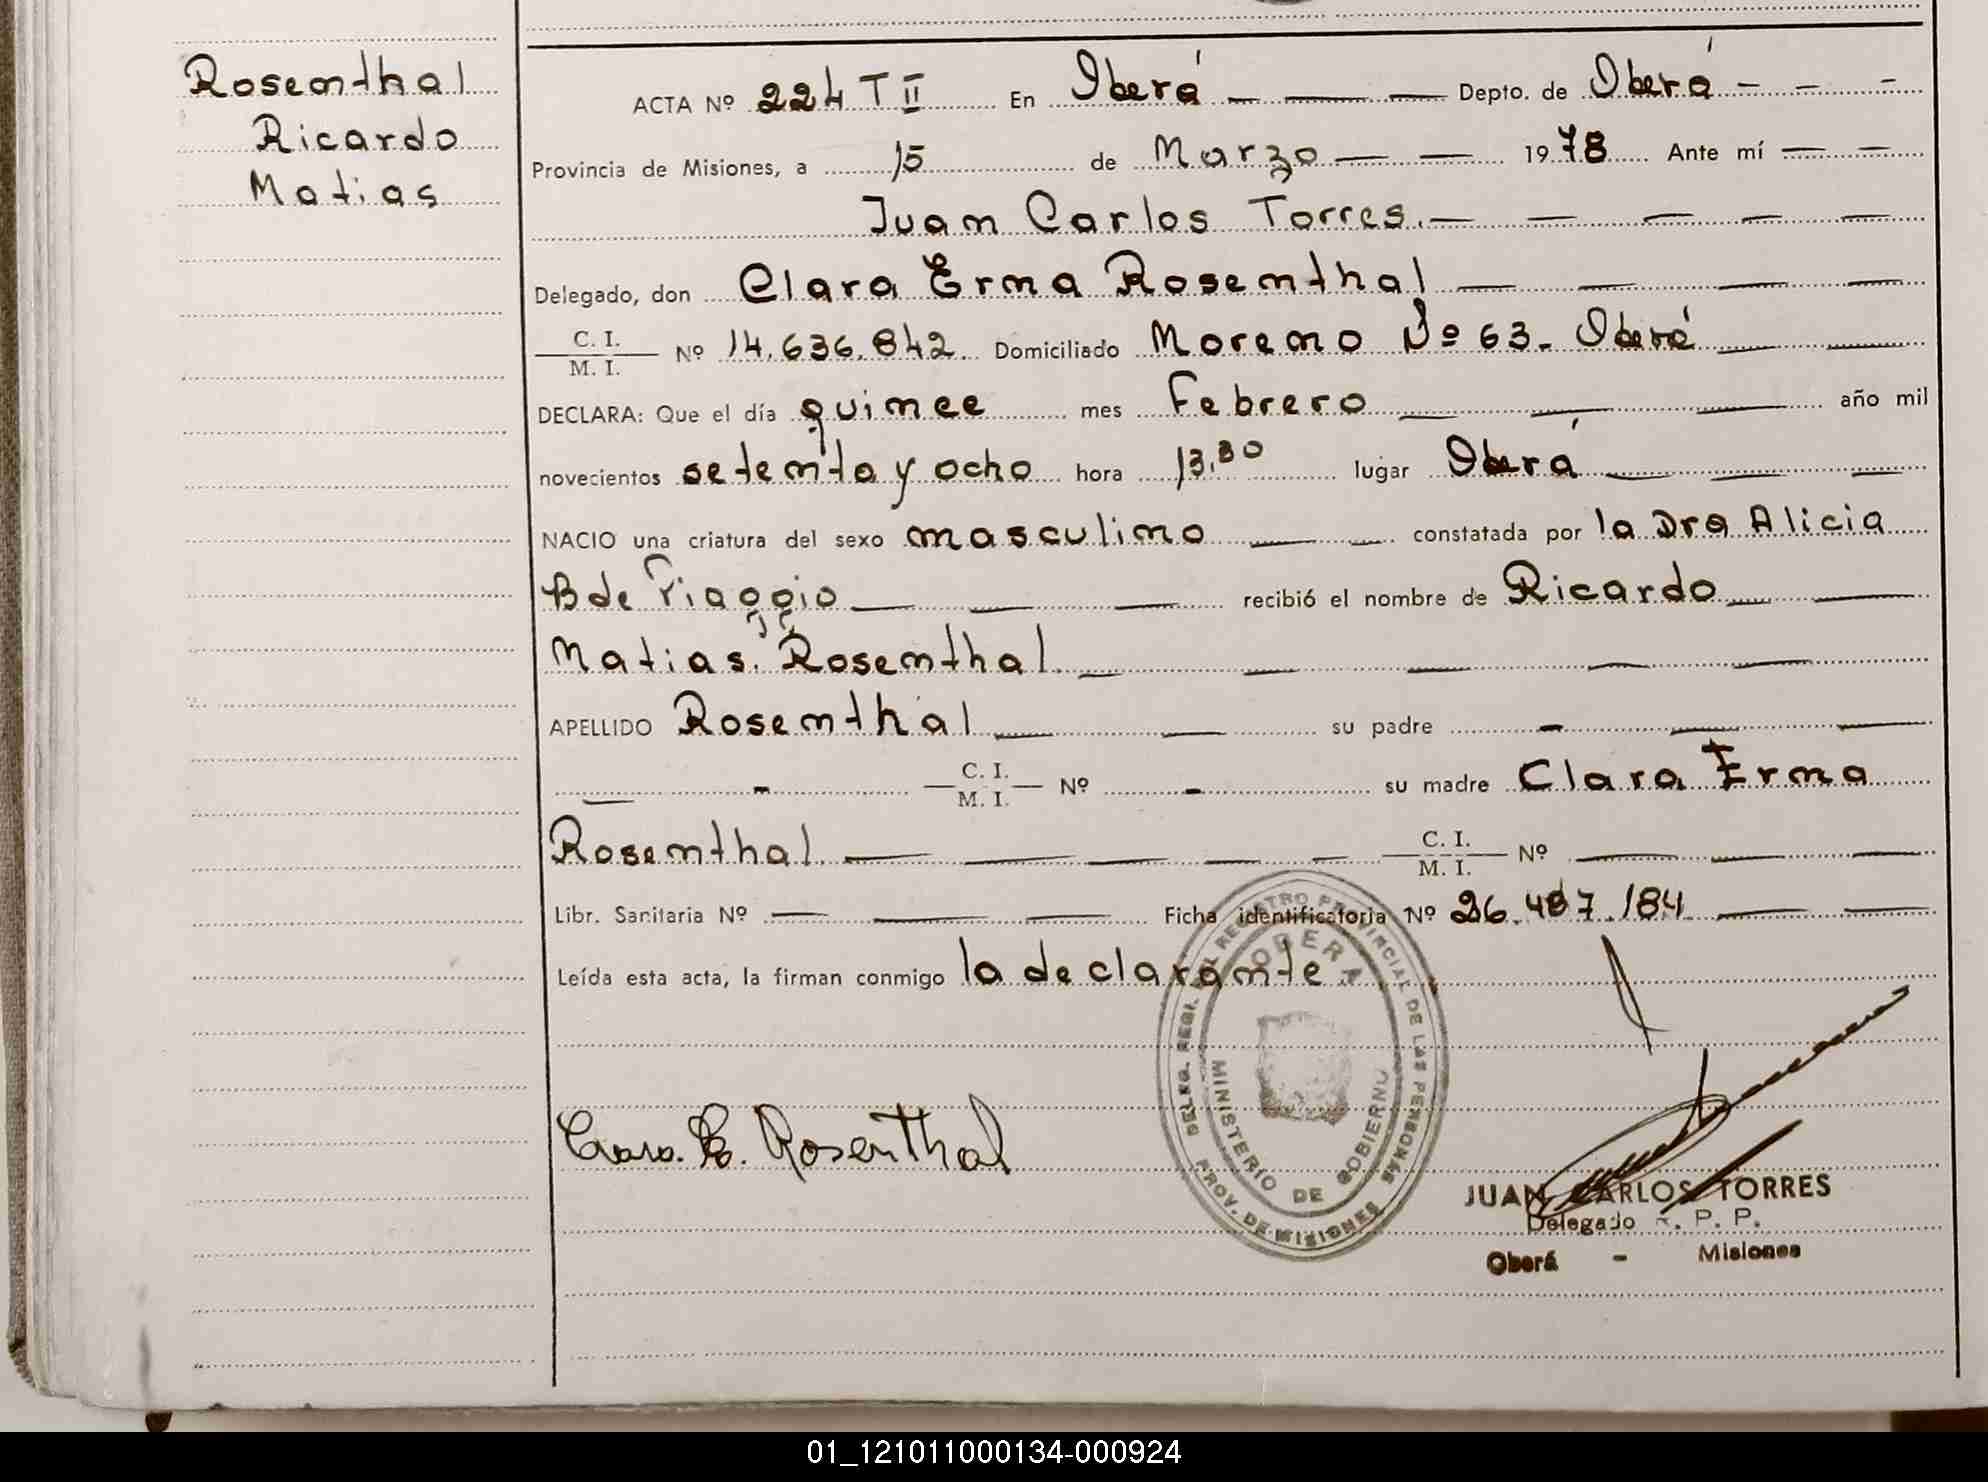 Rosenthal
Ricardo
Matias
ACTA Nº 224 T II En Oberá Depto. de Oberá
Provincia de Misiones, a 15 de Marzo 1978 Ante mí
Juan Carlos Torres.
Delegado, don Clara Erma Rosenthal
C. I. / M. I. Nº 14.636.842 Domiciliado Moreno Nº 63. Oberá
DECLARA: Que el día quince mes Febrero año mil
novecientos setenta y ocho hora 13,30 lugar Oberá
NACIO una criatura del sexo masculino constatada por la Dra Alicia
B de Piaggio recibió el nombre de Ricardo
Matias. Rosenthal
APELLIDO Rosenthal su padre
C. I. / M. I. Nº su madre Clara Erma
Rosenthal C. I. / M. I. Nº
Libr. Sanitaria Nº Ficha identificatoria Nº 26.487.184
Leída esta acta, la firman conmigo la declarante
Clara. E. Rosenthal
OBERA
MINISTERIO DE GOBIERNO
PROV. DE MISIONES
REGISTRO PROVINCIAL DE LAS PERSONAS
JUAN CARLOS TORRES
Delegado R. P. P.
Oberá - Misiones
01_121011000134-000924